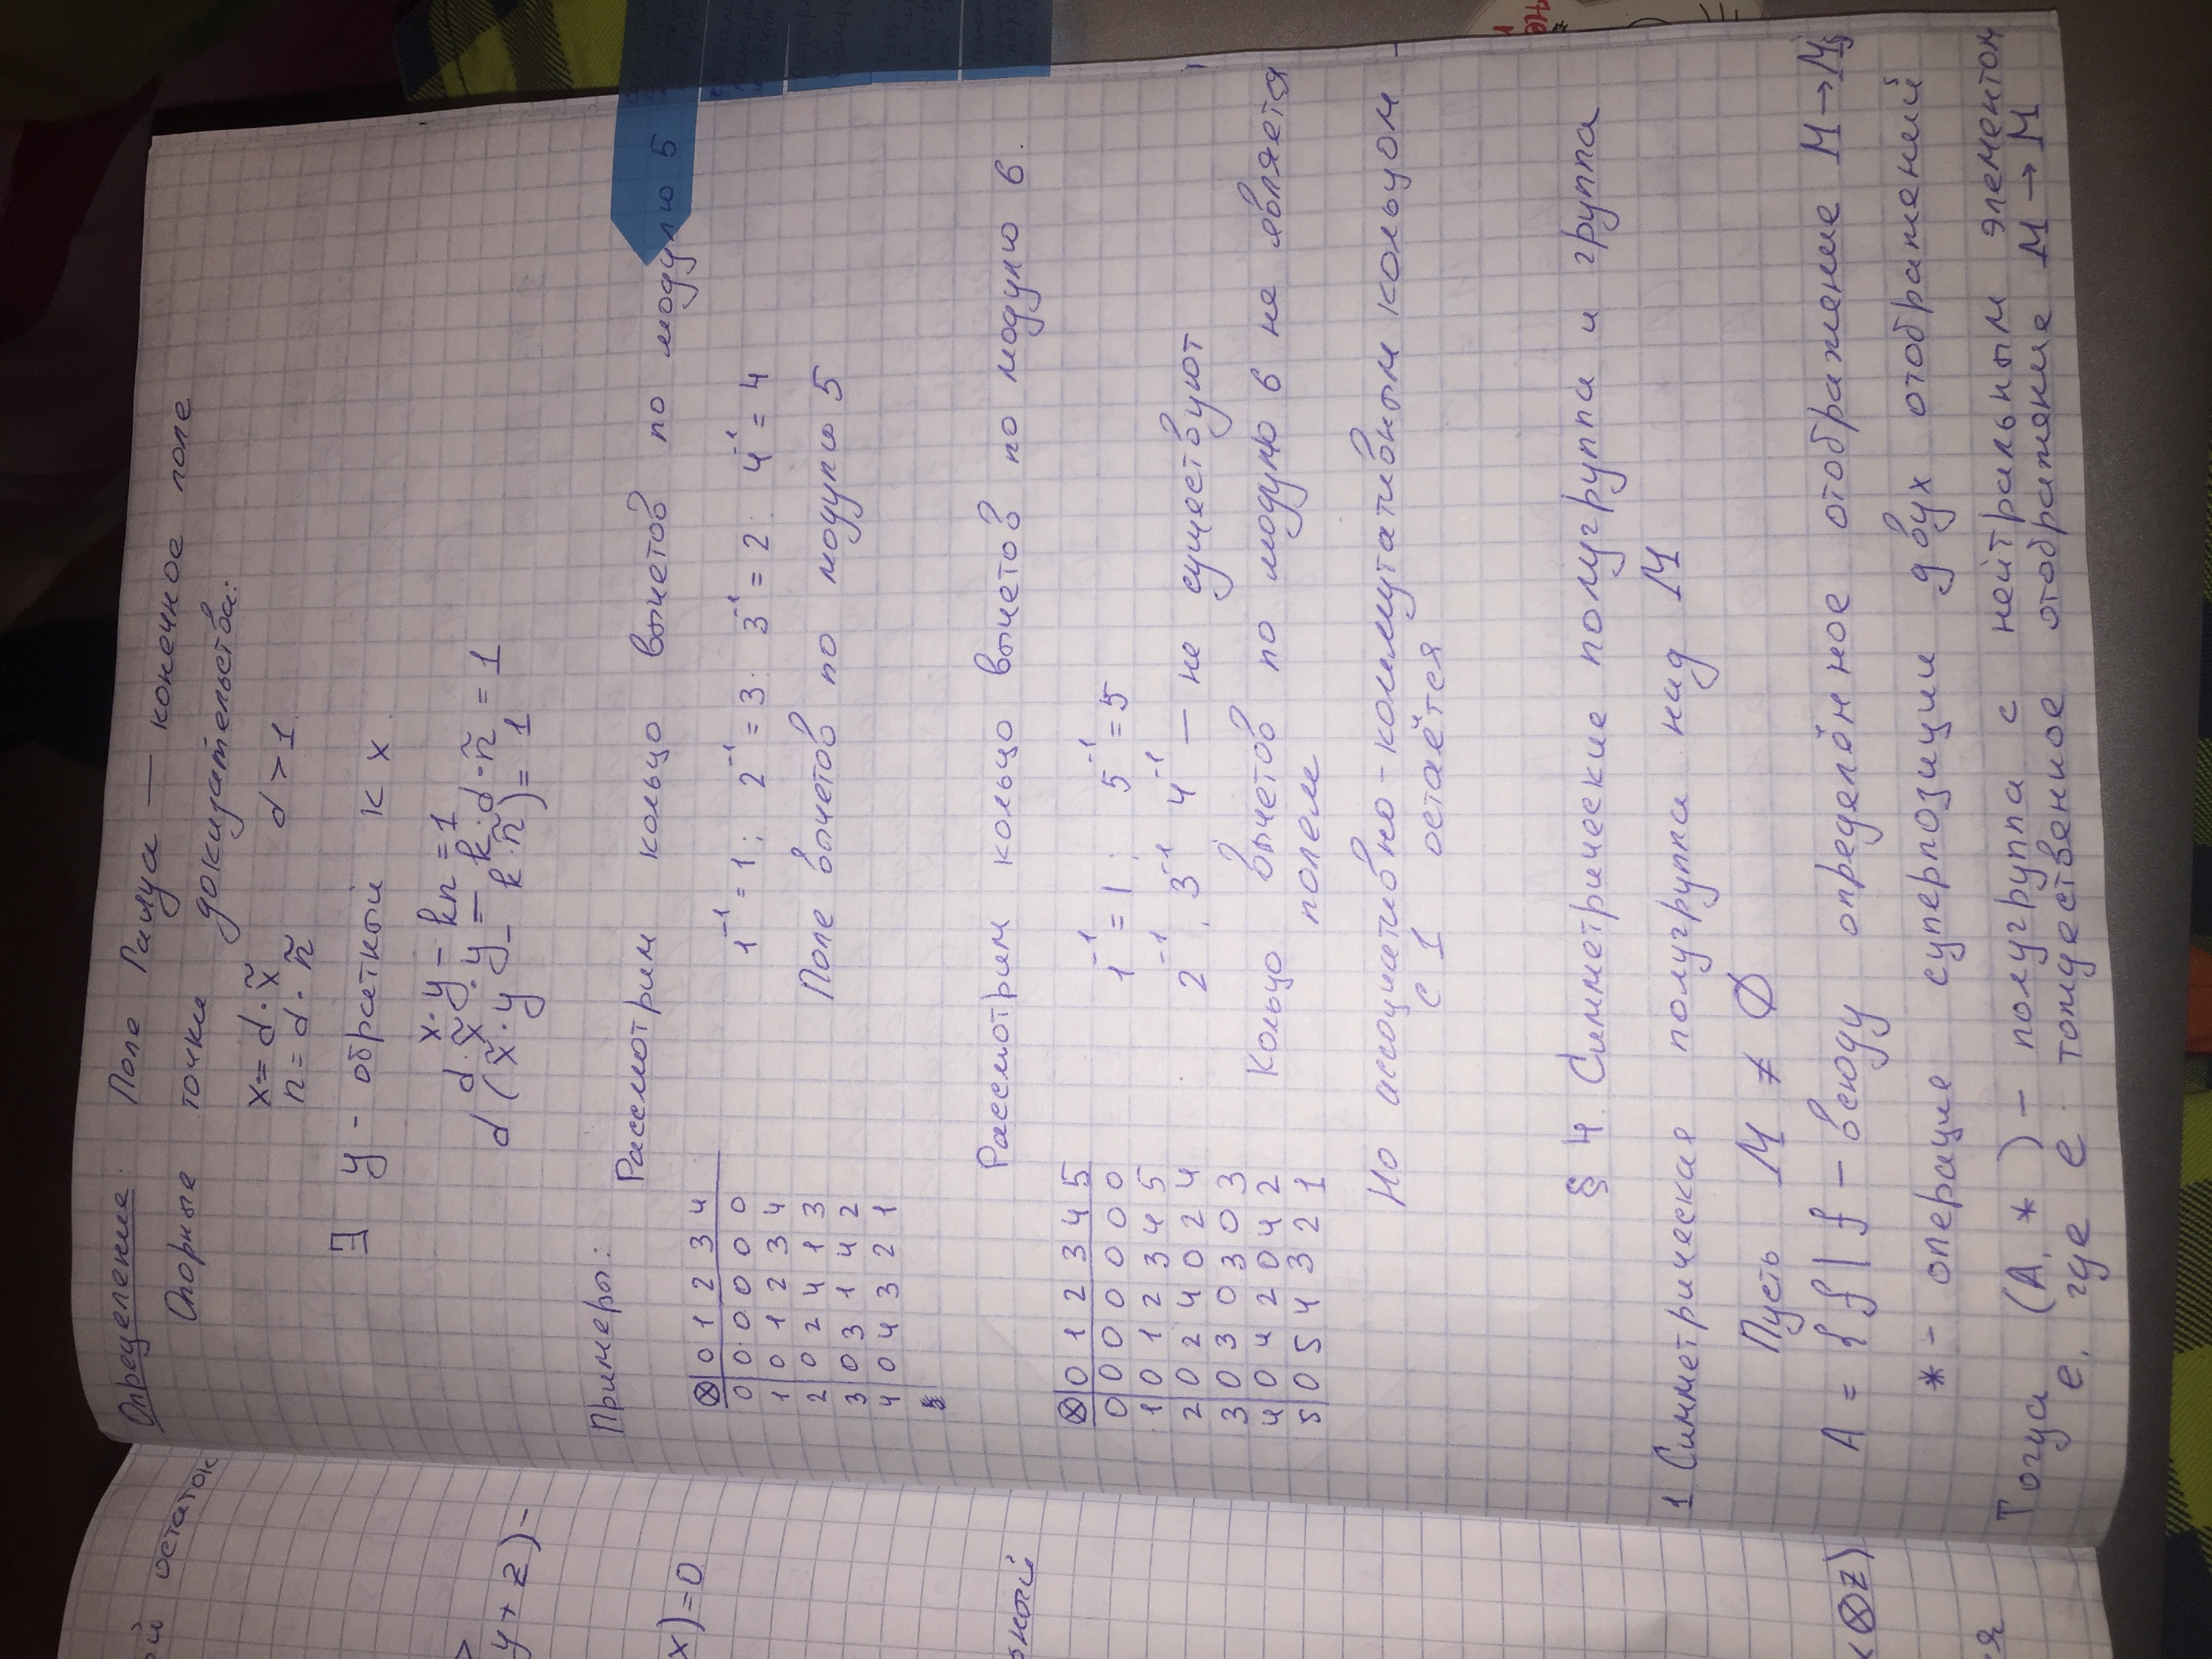 ой остаток
y + z) -
x) = 0
ьный
x ⊗ z)
Определение: Поле Галуа — конечное поле
Опорные точки доказательства:
x = d · x̃
n = d · ñ
d > 1.
∃ y - обратный к x.
x · y - kn = 1
d · x̃ · y - k · d · ñ = 1
d (x̃ · y - k · ñ) = 1
Примеры:
Рассмотрим кольцо вычетов по модулю 5
⊗ 0 1 2 3 4
0 0 0 0 0 0
1 0 1 2 3 4
2 0 2 4 1 3
3 0 3 1 4 2
4 0 4 3 2 1
1⁻¹ = 1; 2⁻¹ = 3; 3⁻¹ = 2; 4⁻¹ = 4
Поле вычетов по модулю 5
Рассмотрим кольцо вычетов по модулю 6.
⊗ 0 1 2 3 4 5
0 0 0 0 0 0 0
1 0 1 2 3 4 5
2 0 2 4 0 2 4
3 0 3 0 3 0 3
4 0 4 2 0 4 2
5 0 5 4 3 2 1
1⁻¹ = 1; 5⁻¹ = 5
2⁻¹, 3⁻¹ 4⁻¹ — не существуют
Кольцо вычетов по модулю 6 не является
полем
Но ассоциативно-коммутативным кольцом
с 1 остаётся
§ 4. Симметрические полугруппа и группа
1. Симметрическая полугруппа над M
Пусть M ≠ ∅
A = { f | f — всюду определённое отображение M → M}
* - операция суперпозиции двух отображений
Тогда (A, *) — полугруппа с нейтральным элементом
e, где e тождественное отображение M → M